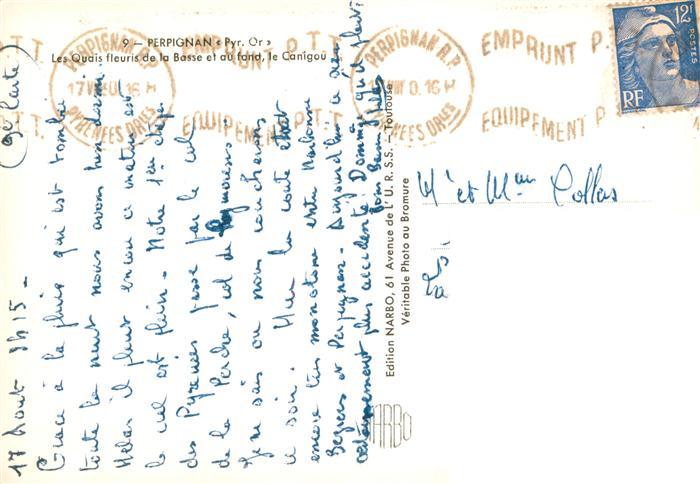 9 - PERPIGNAN « Pyr. Or »
Les Quais fleuris de la Basse et au fond, le Canigou
PERPIGNAN R.P.
16 H
PYRENEES ORLES
EMPRUNT P.T.T.
EQUIPEMENT P.T.T.
PERPIGNAN R.P.
16 H
PYRENEES ORLES
EMPRUNT P.
EQUIPEMENT P
12F
POSTES
RF
(9e Carte)
17 Août 8h15 -
Grace à la pluie qui est tombée
toute la nuit nous avons bien dormi.
Helas il pleut encore ce matin et
le ciel est plein - Notre 1ère étape
des Pyrenées passe par le col
de la Perche, col de Puymorens
Je ne sais où nous coucherons
ce soir. Hier la route était
encore très monotone entre Narbonne
Beziers et Perpignan - Aujourd'hui ce sera
certainement plus accidenté. Dommage qu'il pleut.
Bons Baisers
Edition NARBO, 61 Avenue de l'U.R.S.S. - Toulouse
Véritable Photo au Bromure
NARBO
Mr et Mme Collas